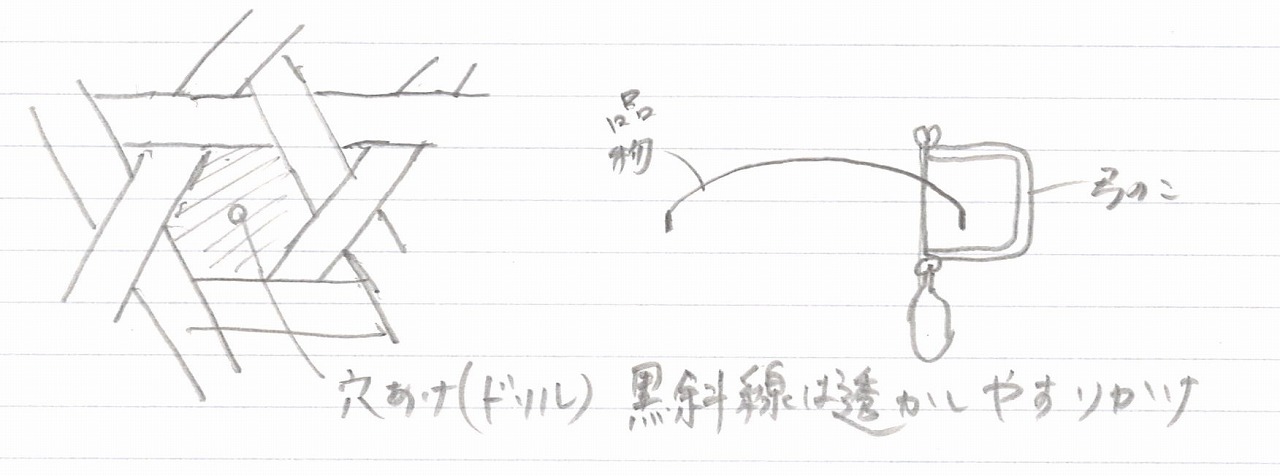 品物
弓のこ
穴あけ(ドリル) 黒斜線は透かしやすりかけ